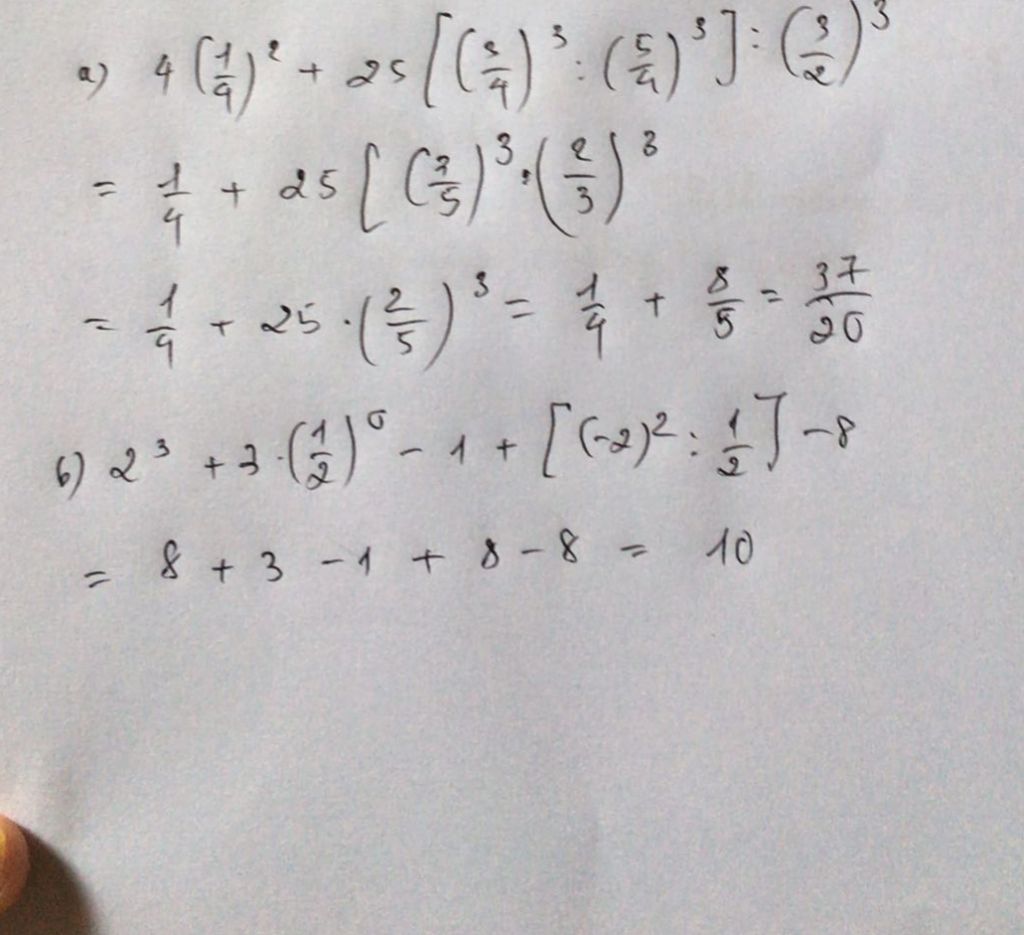 a) 4(1/4)² + 25[(3/4)³ : (5/4)³] : (3/2)³
= 1/4 + 25[(3/5)³ · (2/3)³
= 1/4 + 25 · (2/5)³ = 1/4 + 8/5 = 37/20
b) 2³ + 3 · (1/2)⁰ - 1 + [(-2)² : 1/2] - 8
= 8 + 3 - 1 + 8 - 8 = 10